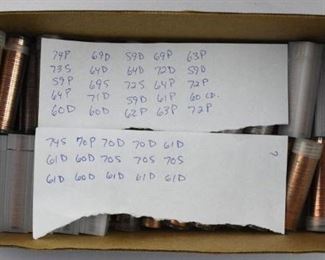 74P 69D 59D 69P 63P
73S 64D 64D 72D 59D
59P 69S 72S 64P 72P
64P 71D 59D 61P 60 CD.
60D 60D 62P 63P 72P
74S 70P 70D 70D 61D
61D 60D 70S 70S 70S
61D 60D 61D 61D 61D